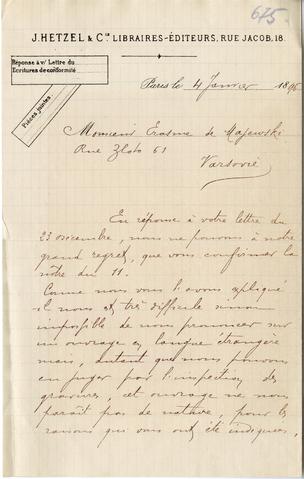 675.
J. HETZEL & Cie LIBRAIRES-ÉDITEURS, RUE JACOB, 18.
Réponse à vtre Lettre du
Ecritures de conformité
Pièces jointes
Paris le 4 Janvier 1896
Monsieur Erasme de Majewski
Rue Zloto 61
Varsovie
En réponse à votre lettre du
23 décembre, nous ne pouvons à notre
grand regret, que vous confirmer la
nôtre du 11.
Comme nous vous l'avons expliqué
il nous est très difficile sinon
impossible de nous prononcer sur
un ouvrage en langue étrangère
mais, autant que nous pouvons
en juger par l'inspection des
gravures, cet ouvrage ne nous
paraît pas de nature, pour les
raisons qui vous ont été indiquées,